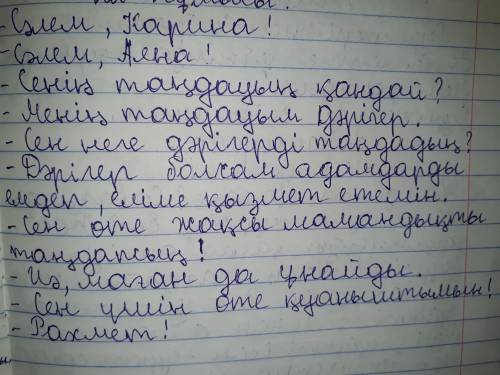 - Сәлем, Карина!
- Сәлем, Аяна!
- Сенің таңдауың қандай?
- Менің таңдауым дәрігер.
- Сен неге дәрігерді таңдадың?
- Дәрігер болсам адамдарды
емдеп, еліме қызмет етемін.
- Сен өте жақсы мамандықты
таңдапсың!
- Иә, маған да ұнайды.
- Сен үшін өте қуаныштымын!
- Рахмет!